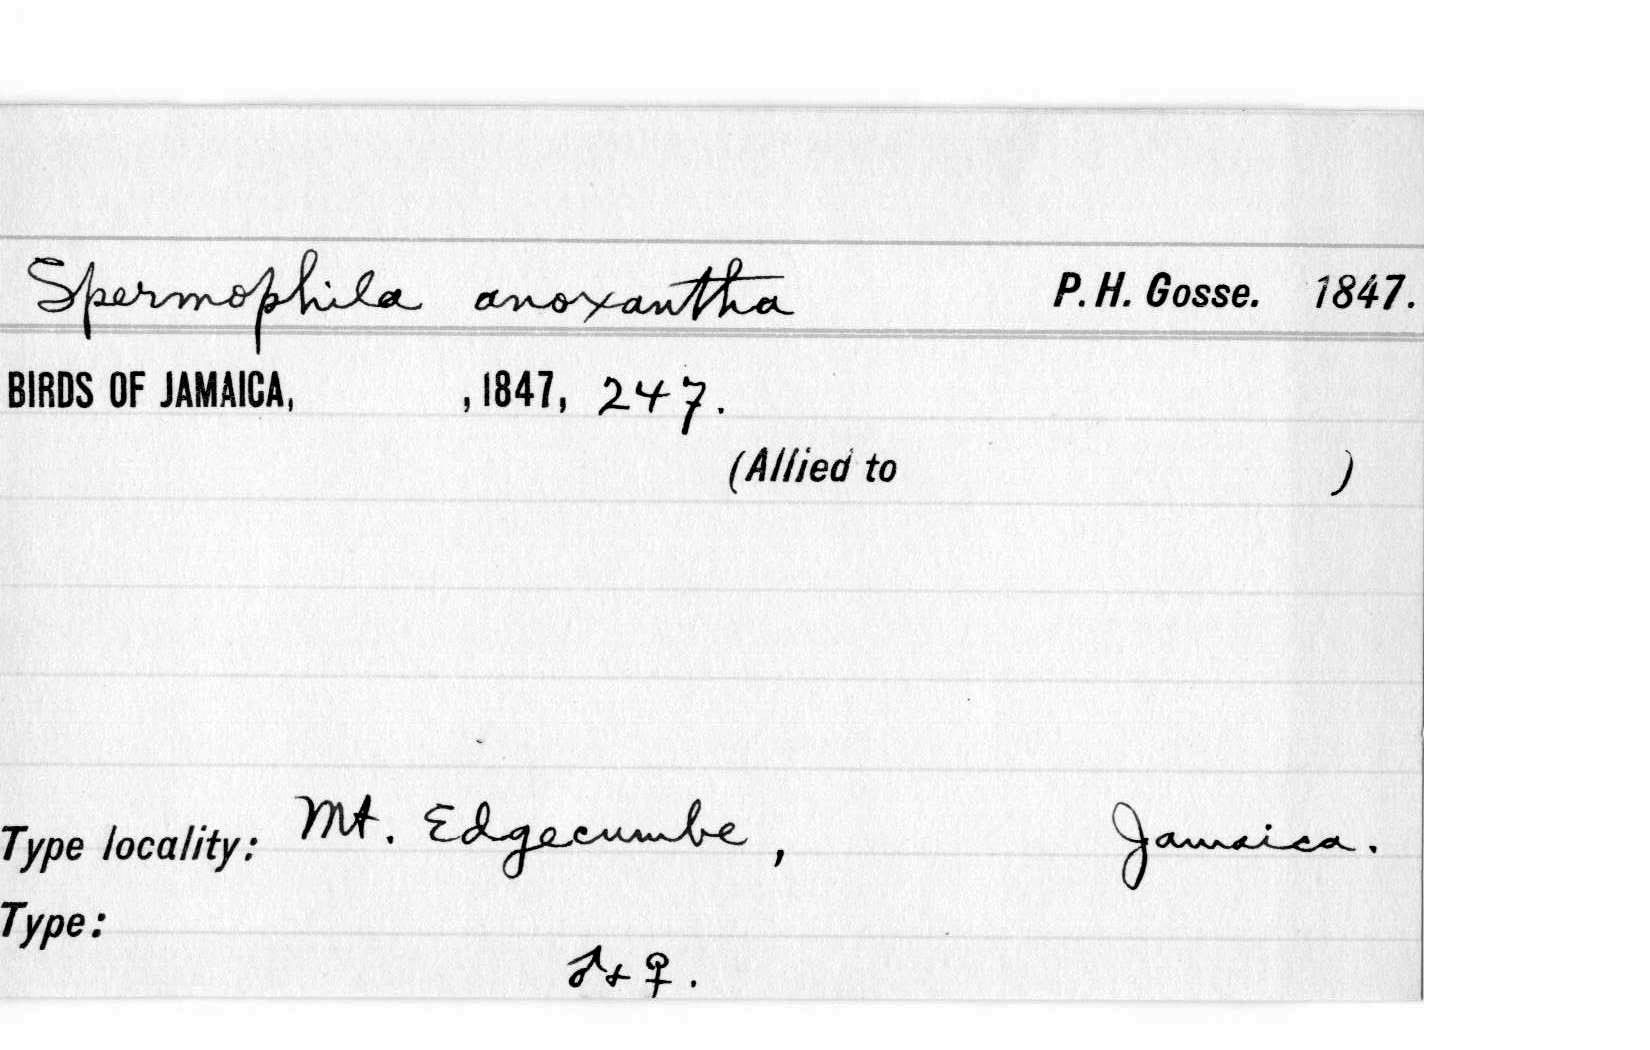 Spermophila anoxantha P. H. Gosse. 1847.
BIRDS OF JAMAICA, , 1847, 247.
(Allied to )
Type locality: Mt. Edgecumbe, Jamaica.
Type:
♂ + ♀.